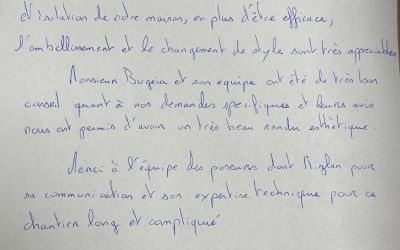 d'isolation de notre maison, en plus d'être efficace,
l'embellissement et le changement de style sont très appréciables
Monsieur Bugeia et son equipe ont été de très bon
conseil quant à nos demandes spécifiques et leurs avis
nous ont permis d'avoir un très beau rendu esthétique.
Merci à l'équipe des poseurs dont Rizlan pour
sa communication et son expertise technique pour ce
chantier long et compliqué